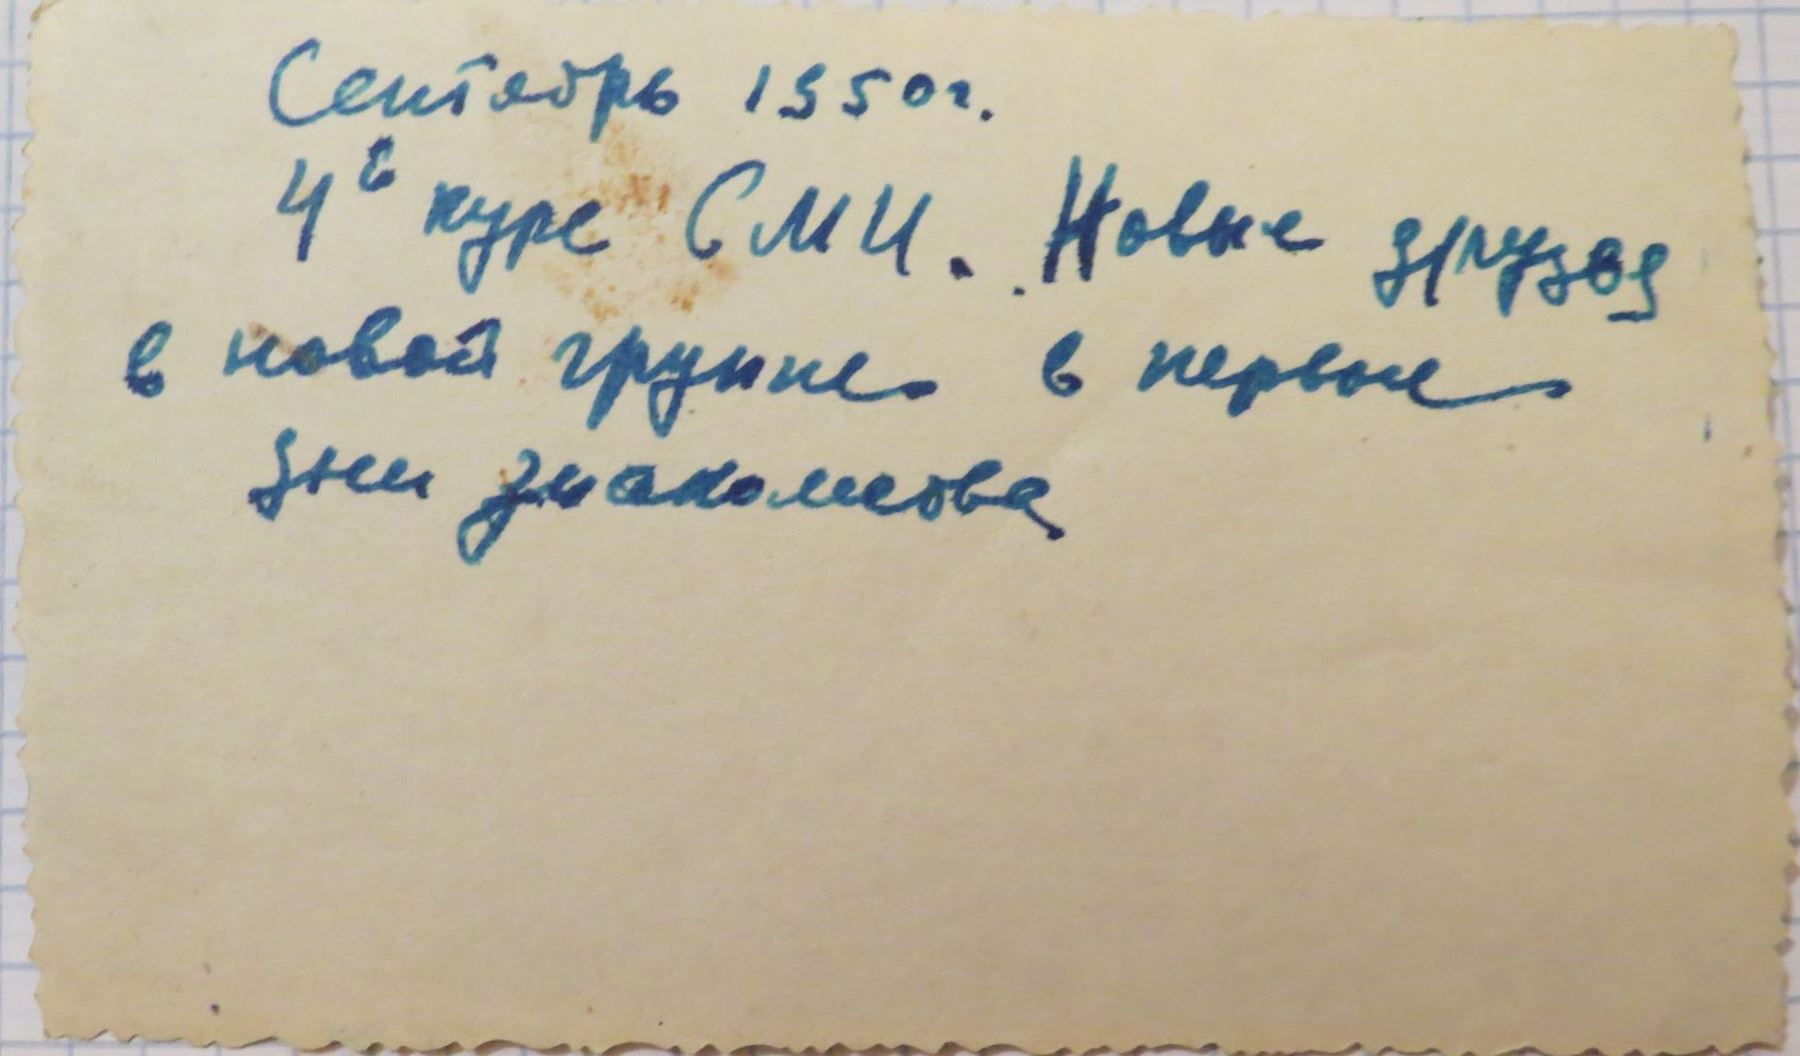 Сентябрь 1950г.
4й курс СМИ. Новые друзья
в новой группе в первые
дни знакомства